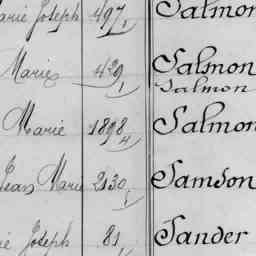 arie Joseph 497, Salmon
Marie 429, Salmon
Salmon
Marie 1898, Salmon
Jean Marie 2130, Samson
ie Joseph 81, Sander